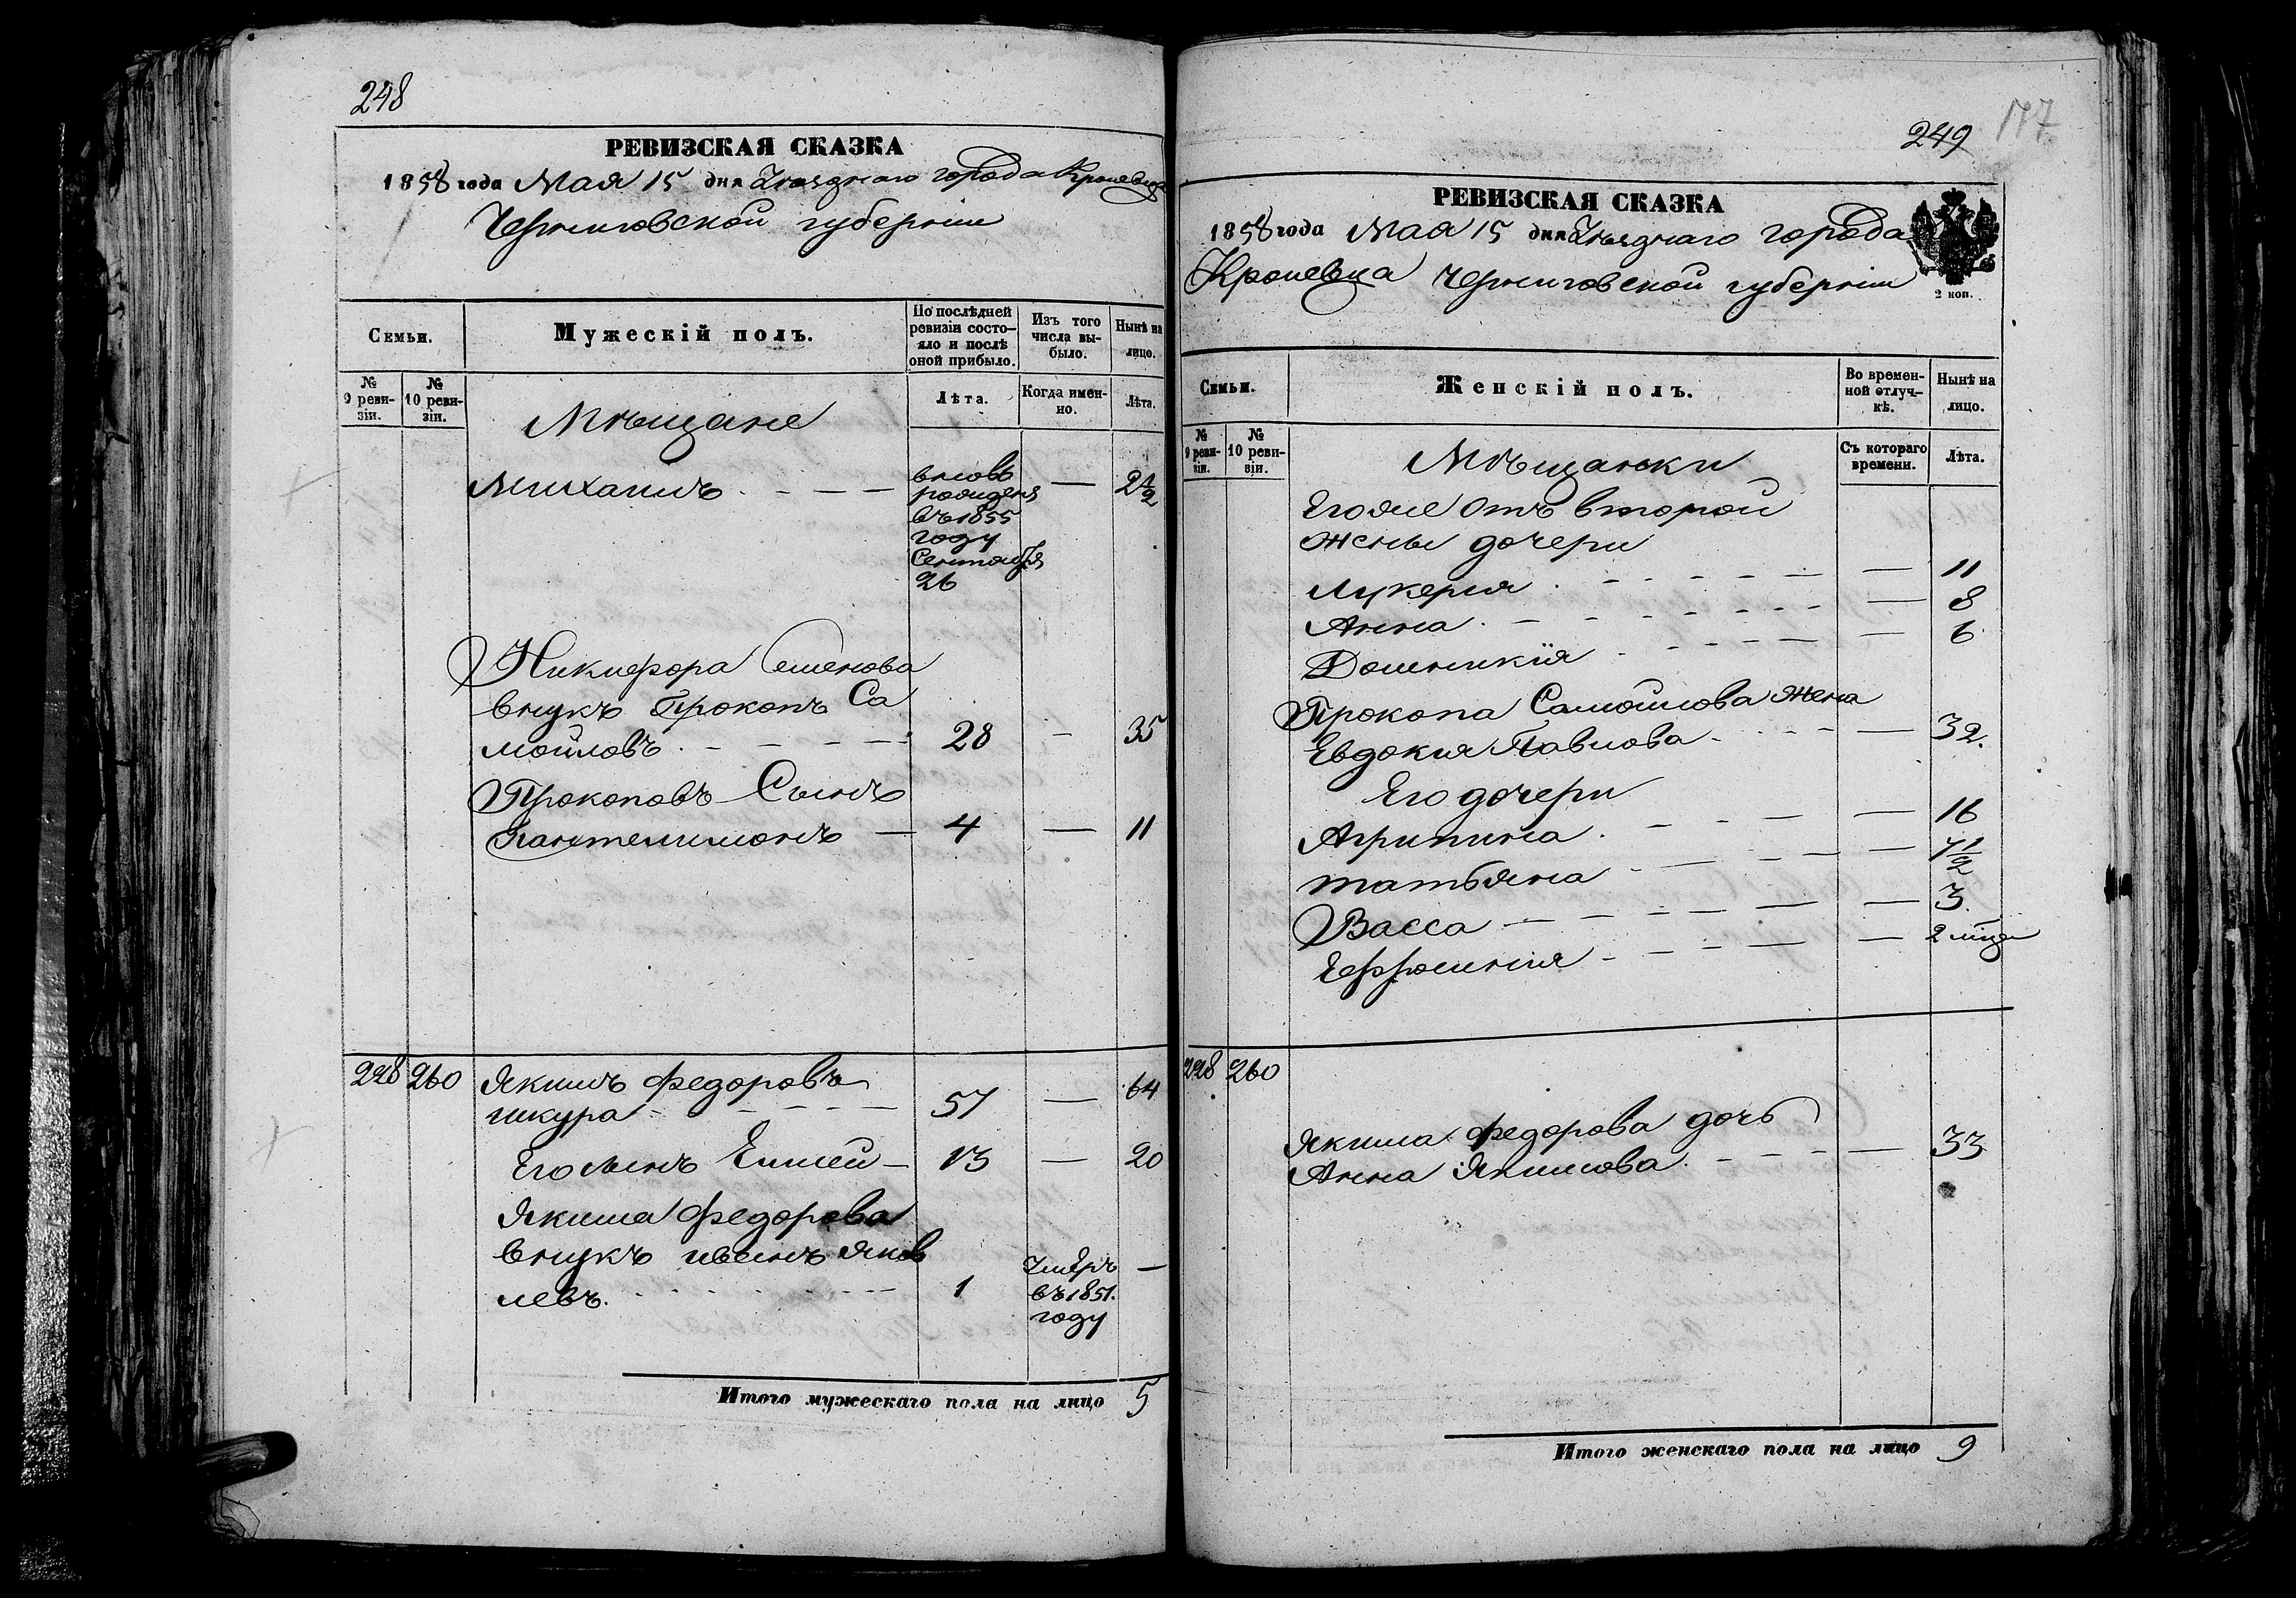 248
РЕВИЗСКАЯ СКАЗКА
1858 года Мая 15 дня Уѣзднаго города Кролевца
Черниговской губерніи
Семьи.
Мужескій полъ.
По послѣдней ревизіи состо-
яло и послѣ оной прибыло.
Изъ того числа вы-
было.
Нынѣ на лицо.
№ 9 реви-
зіи.
№ 10 реви-
зіи.
Лѣта.
Когда имен-
но.
Лѣта.
Мѣщане
Михаилъ
вновь
рожденъ
въ 1855
году
Сентября
26
— 2 1/2
Никифора Семенова
внукъ Прокопъ Са
мойловъ 28 — 35
Прокоповъ Сынъ
Пантелимонъ — 4 — 11
228 260 Якимъ Федоровъ
шкура 57 — 64
Его сынъ Елисей — 13 — 20
Якима Федорова
внукъ Яков
левъ. 1
Умеръ
въ 1851.
году
—
Итого мужескаго пола на лицо 5
249
177
РЕВИЗСКАЯ СКАЗКА
1858 года Мая 15 дня Уѣзднаго города
Кролевца Черниговской губерніи
2 коп.
Семьи.
Женскій полъ.
Во времен-
ной отлуч-
кѣ.
Нынѣ на лицо.
№ 9 реви-
зіи.
№ 10 реви-
зіи.
Съ котораго времени.
Лѣта.
Мѣщанки
Егоже отъ второй
жены дочери
Лукерия — 11
Анна — 8
Доминикія — 6
Прокопа Самойлова жена
Евдокия Павлова — 32.
Его дочери
Агрипина — 16
татьяна — 7 1/2
Васса — 3.
Ефросиния — 2 мѣся
228 260
Якима Федорова дочь
Анна Якимова — 33
Итого женскаго пола на лицо 9